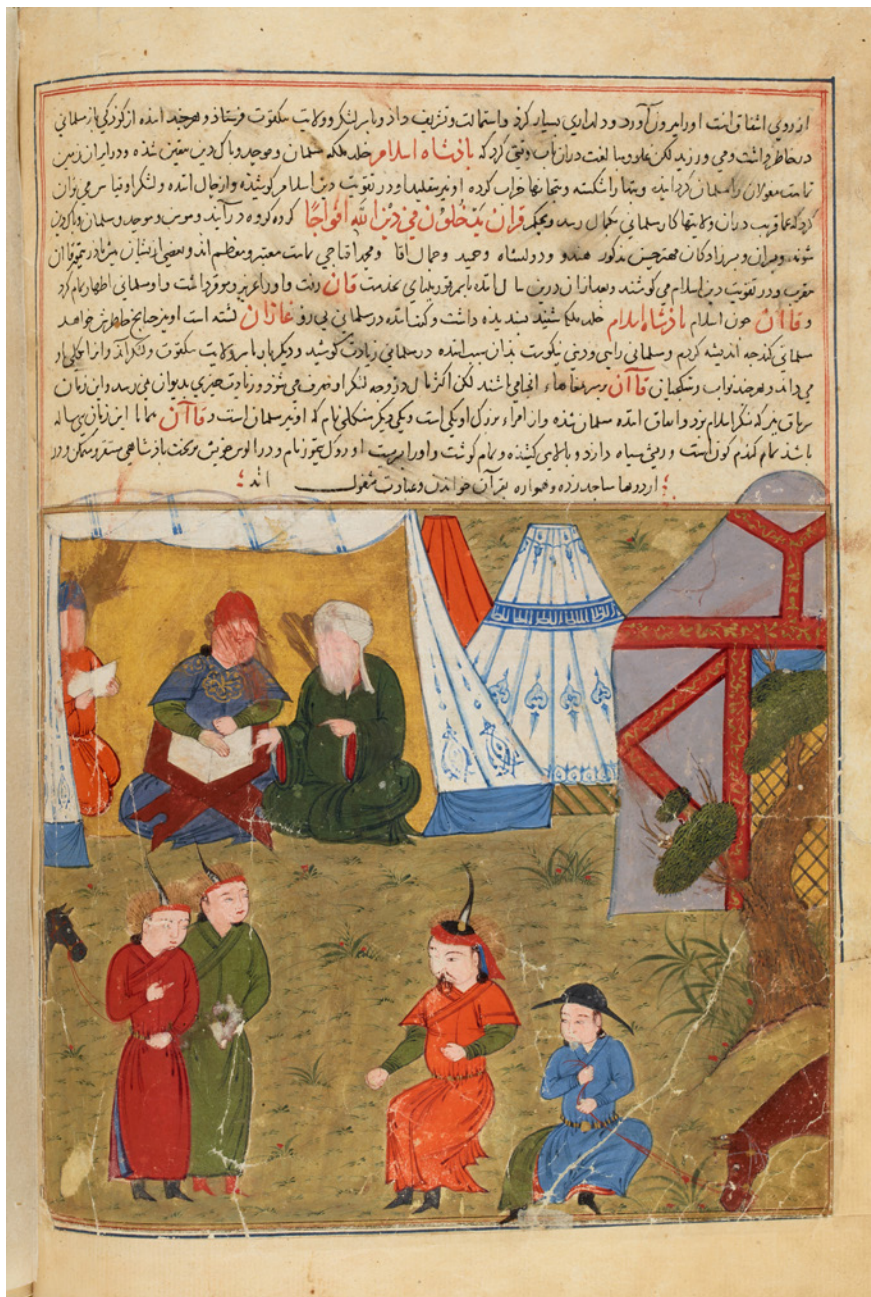 از روی اشفاق او را بیرون آورد و دلداری بسیار کرد و استمالت و تشریف داد و با سر لشکر و ولایت تنکقوت فرستاد و هرچند انده از کودکی باز مسلمانی
در خاطر داشت و می ورزید لکن علو و مبالغت در آن باب وقتی کرد که باذشاه اسلام خلد ملکه مسلمان و موحد و پاک دین شده و در ایران زمین
تمامت مغولان را مسلمان گردانیده و بتها را شکسته و بتخانها خراب کرده او نیز تقلیدا و در تقویت دین اسلام کوشیده و از حال انده و لشکر او قیاس می توان
کرد که عما قریب در آن ولایتها کار مسلمانی بکمال رسد و بحکم قرآن یدخلون فی دین الله افواجا کروه کروه در آیند و مومن و موحد و مسلمان و پاک دین
شوند و پسران و پسرزادکان مهتر حسن مذکور هندو و دولتشاه و حمید و جمال اقا و محمد اقتاجی تمامت معتبر و معظم اند و بعضی از ایشان پیش مادر تیمور قاآن
مقرب و در تقویت دین اسلام می کوشند و بعد از آن درین سال انده بامر قوریلتای بخدمت قاآن رفت و او را عزیز و موقر داشت و او مسلمانی اظهار تمام کرد
و قاآن چون اسلام باذشاه اسلام خلد ملکه شنید پسندیده داشت و گفت انده در مسلمانی پی رو غازان گشته است او نیز چنانچ خاطرش خواهد
مسلمانی کند چه اندیشه کردم و مسلمانی راهی و دینی نیکوست بدان سبب انده در مسلمانی زیادت کوشید و دیگر بار با سر ولایت تنکقوت و لشکر آمد و از آن
می داند و هرچند نواب و قاآن بر سر تمغاها آنجا می باشند لکن اکثر مال در وجه لشکر او صرف می شود و زیادت چیزی بدیوان نمی رسد و این زمان
سرتاق نیز که منکر اسلام بود و ایغاق انده مسلمان شده و از امراء بزرک او یکی است و یکی دیگر منکلی نام که او نیز مسلمان است و قاآن همانا این زمان سی ساله
باشد تمام گندم گون است و ریش سیاه دارد و بالایی کشیده و تمام گوشت و او را پسریست اوروک تیمور نام و در الوس خویش بر تخت پادشاهی مستقر و متمکن و در
اردوها مساجد زده و همواره بقرآن خواندن و عبادت مشغول اند